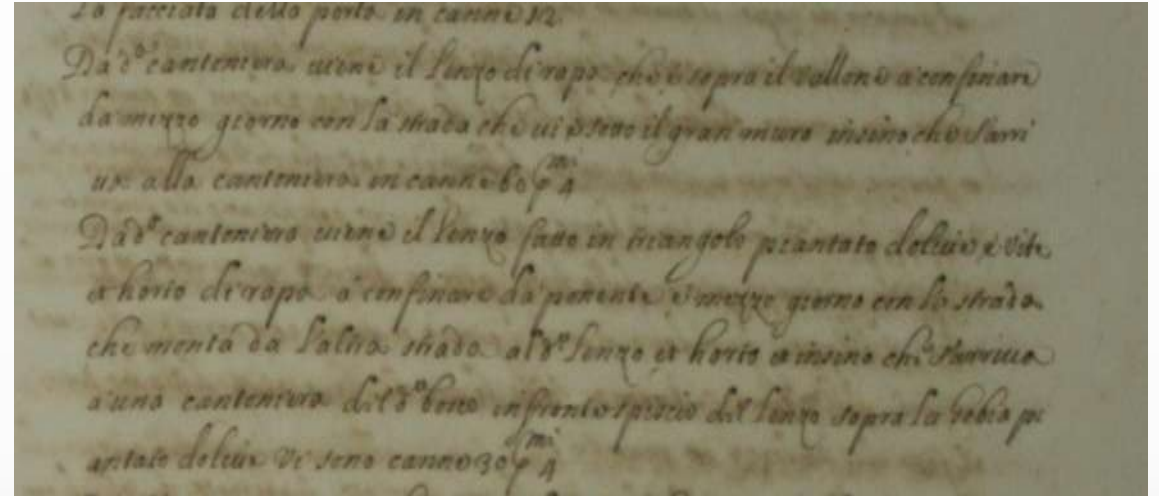 la facciata della porta in canne 12.
Da d.ª cantoniera viene il lenzo di rapo che è sopra il vallone a confinare
da mezzo giorno con la strada che vi è sotto il gran muro insino che s'arri
va alla cantoniera in canne 60 p.mi 4
Da d.ª cantoniera viene il lenzo fatto in triangolo piantato d'olive, e vite
et horto di rapo a confinare da ponente e mezzo giorno con la strada
che monta da l'altra strada al d.º lenzo et horto et insino che s'arriva
a una cantoniera del d.º bene in frontespicio del lenzo sopra la pi
antato d'olive vi sono canne 30 p.mi 4